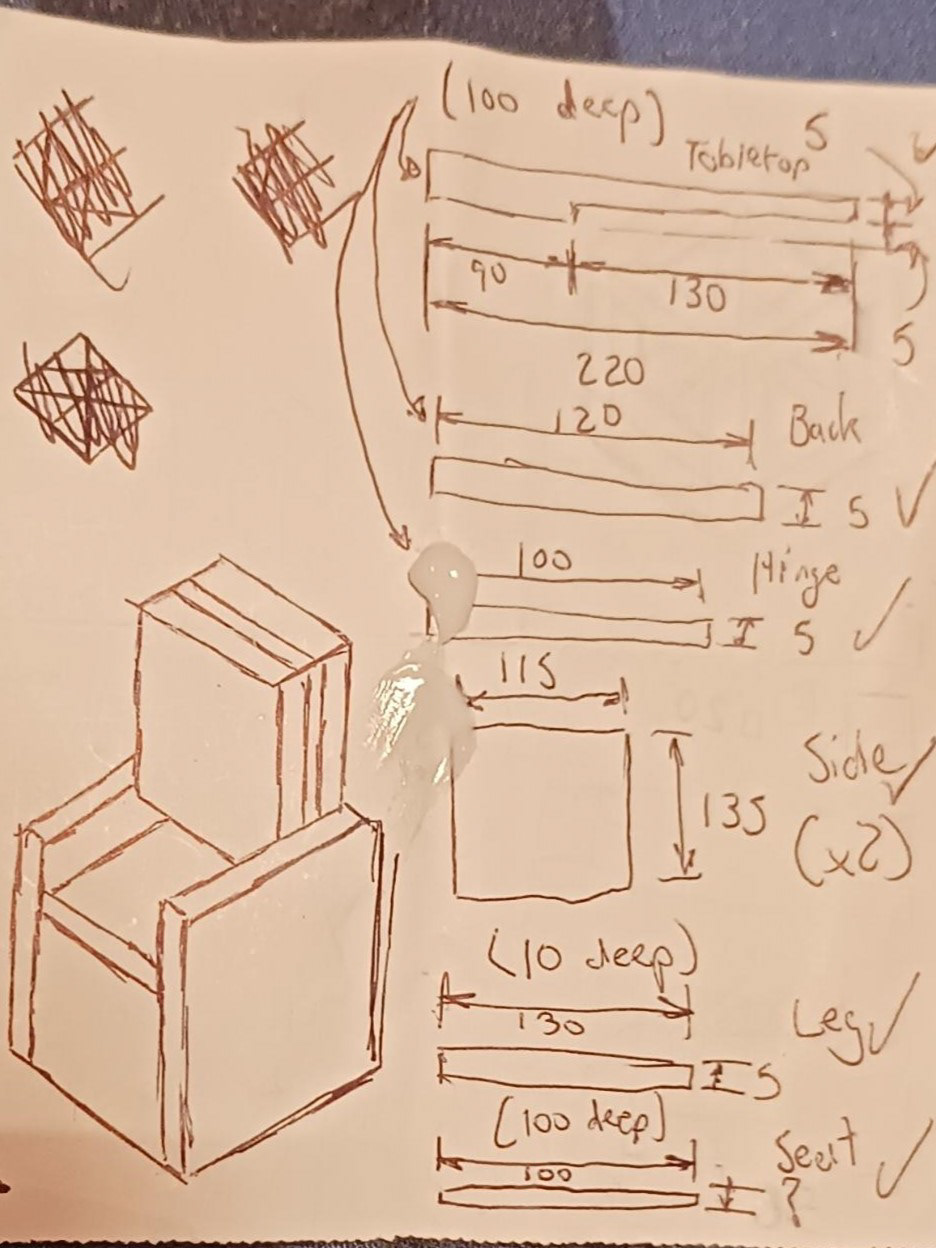 (100 deep)
Tabletop 5
90
130
5
220
120
Back
5
100
Hinge
5
115
Side
135
(x2)
(10 deep)
130
Leg
5
(100 deep)
Seat
100
?